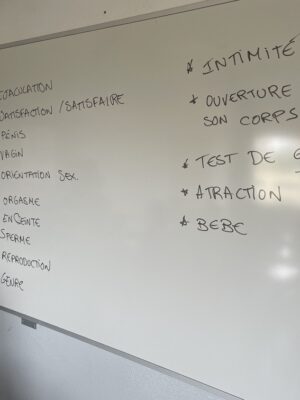 EJACULATION
SATISFACTION / SATISFAIRE
PÉNIS
VAGIN
ORIENTATION SEX.
ORGASME
ENCEINTE
SPERME
REPRODUCTION
GENRE
* INTIMITÉ
* OUVERTURE
SON CORPS
* TEST DE
* ATRACTION
* BEBE